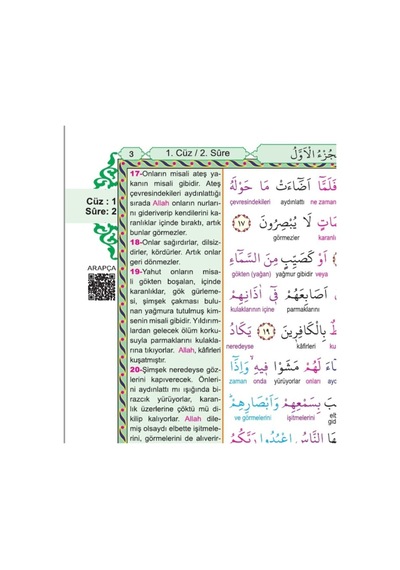 3
1. Cüz / 2. Sûre
اَلْجُزْءُ الْاَوَّلُ
Cüz : 1
Sûre: 2
ARAPÇA
17-Onların misali ateş ya-
kanın misali gibidir. Ateş
çevresindekileri aydınlattığı
sırada Allah onların nurları-
nı gideriverip kendilerini ka-
ranlıklar içinde bıraktı, artık
bunlar görmezler.
18-Onlar sağırdırlar, dilsiz-
dirler, kördürler. Artık onlar
geri dönmezler.
19-Yahut onların misa-
li gökten boşalan, içinde
karanlıklar, gök gürleme-
si, şimşek çakması bulu-
nan yağmura tutulmuş kim-
senin misali gibidir. Yıldırım-
lardan gelecek ölüm korku-
suyla parmaklarını kulakla-
rına tıkıyorlar. Allah, kâfirleri
kuşatmıştır.
20-Şimşek neredeyse göz-
lerini kapıverecek. Önleri-
ni aydınlattı mı ışığında bi-
razcık yürüyorlar, karan-
lık üzerlerine çöktü mü di-
kilip kalıyorlar. Allah dile-
miş olsaydı elbette işitmele-
rini, görmelerini de alıverir-
فَلَمَّٓا اَضَٓاءَتْ مَا حَوْلَهُ
çevresindekileri aydınlattı ne zaman
لَا يُبْصِرُونَ ﴿١٧﴾
görmezler
اَوْ كَصَيِّبٍ مِنَ السَّمَٓاءِ
gökten (yağan) yağmur gibidir veya
اَصَابِعَهُمْ فٓى اٰذَانِهِمْ
kulaklarının içine parmaklarını
بِالْكَافِرِينَ ﴿١٩﴾ يَكَادُ
neredeyse kâfirleri
لَهُمْ مَشَوْا فِيهِ وَاِذَٓا
zaman onda yürüyorlar onları
بِسَمْعِهِمْ وَاَبْصَارِهِمْ
ve görmelerini işitmelerini
النَّاسُ اعْبُدُوا رَبَّكُمُ